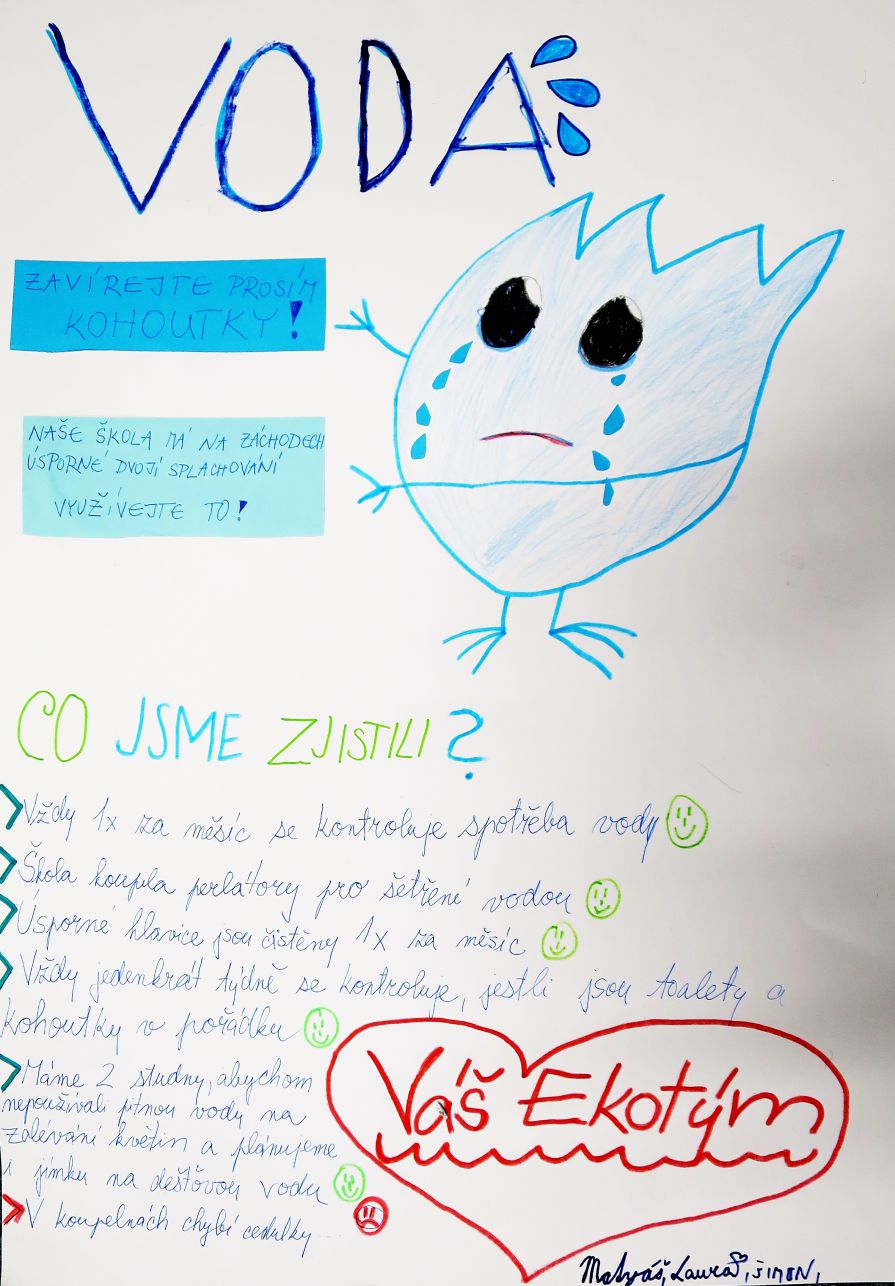 VODA
ZAVÍREJTE PROSÍM
KOHOUTKY!
NAŠE ŠKOLA MÁ NA ZÁCHODECH
ÚSPORNÉ DVOJÍ SPLACHOVÁNÍ
VYUŽÍVEJTE TO!
CO JSME ZJISTILI?
Vždy 1x za měsíc se kontroluje spotřeba vody
Škola koupila perlátory pro šetření vodou
Úsporné hlavice jsou čistěny 1x za měsíc
Vždy jedenkrát týdně se kontroluje, jestli jsou toalety a
kohoutky v pořádku
Máme 2 studny, abychom
nepoužívali pitnou vodu na
zalévání květin a plánujeme
i jímku na dešťovou vodu
V koupelnách chybí cedulky...
Váš Ekotým
Matyáš, Laura, ŠIMON,